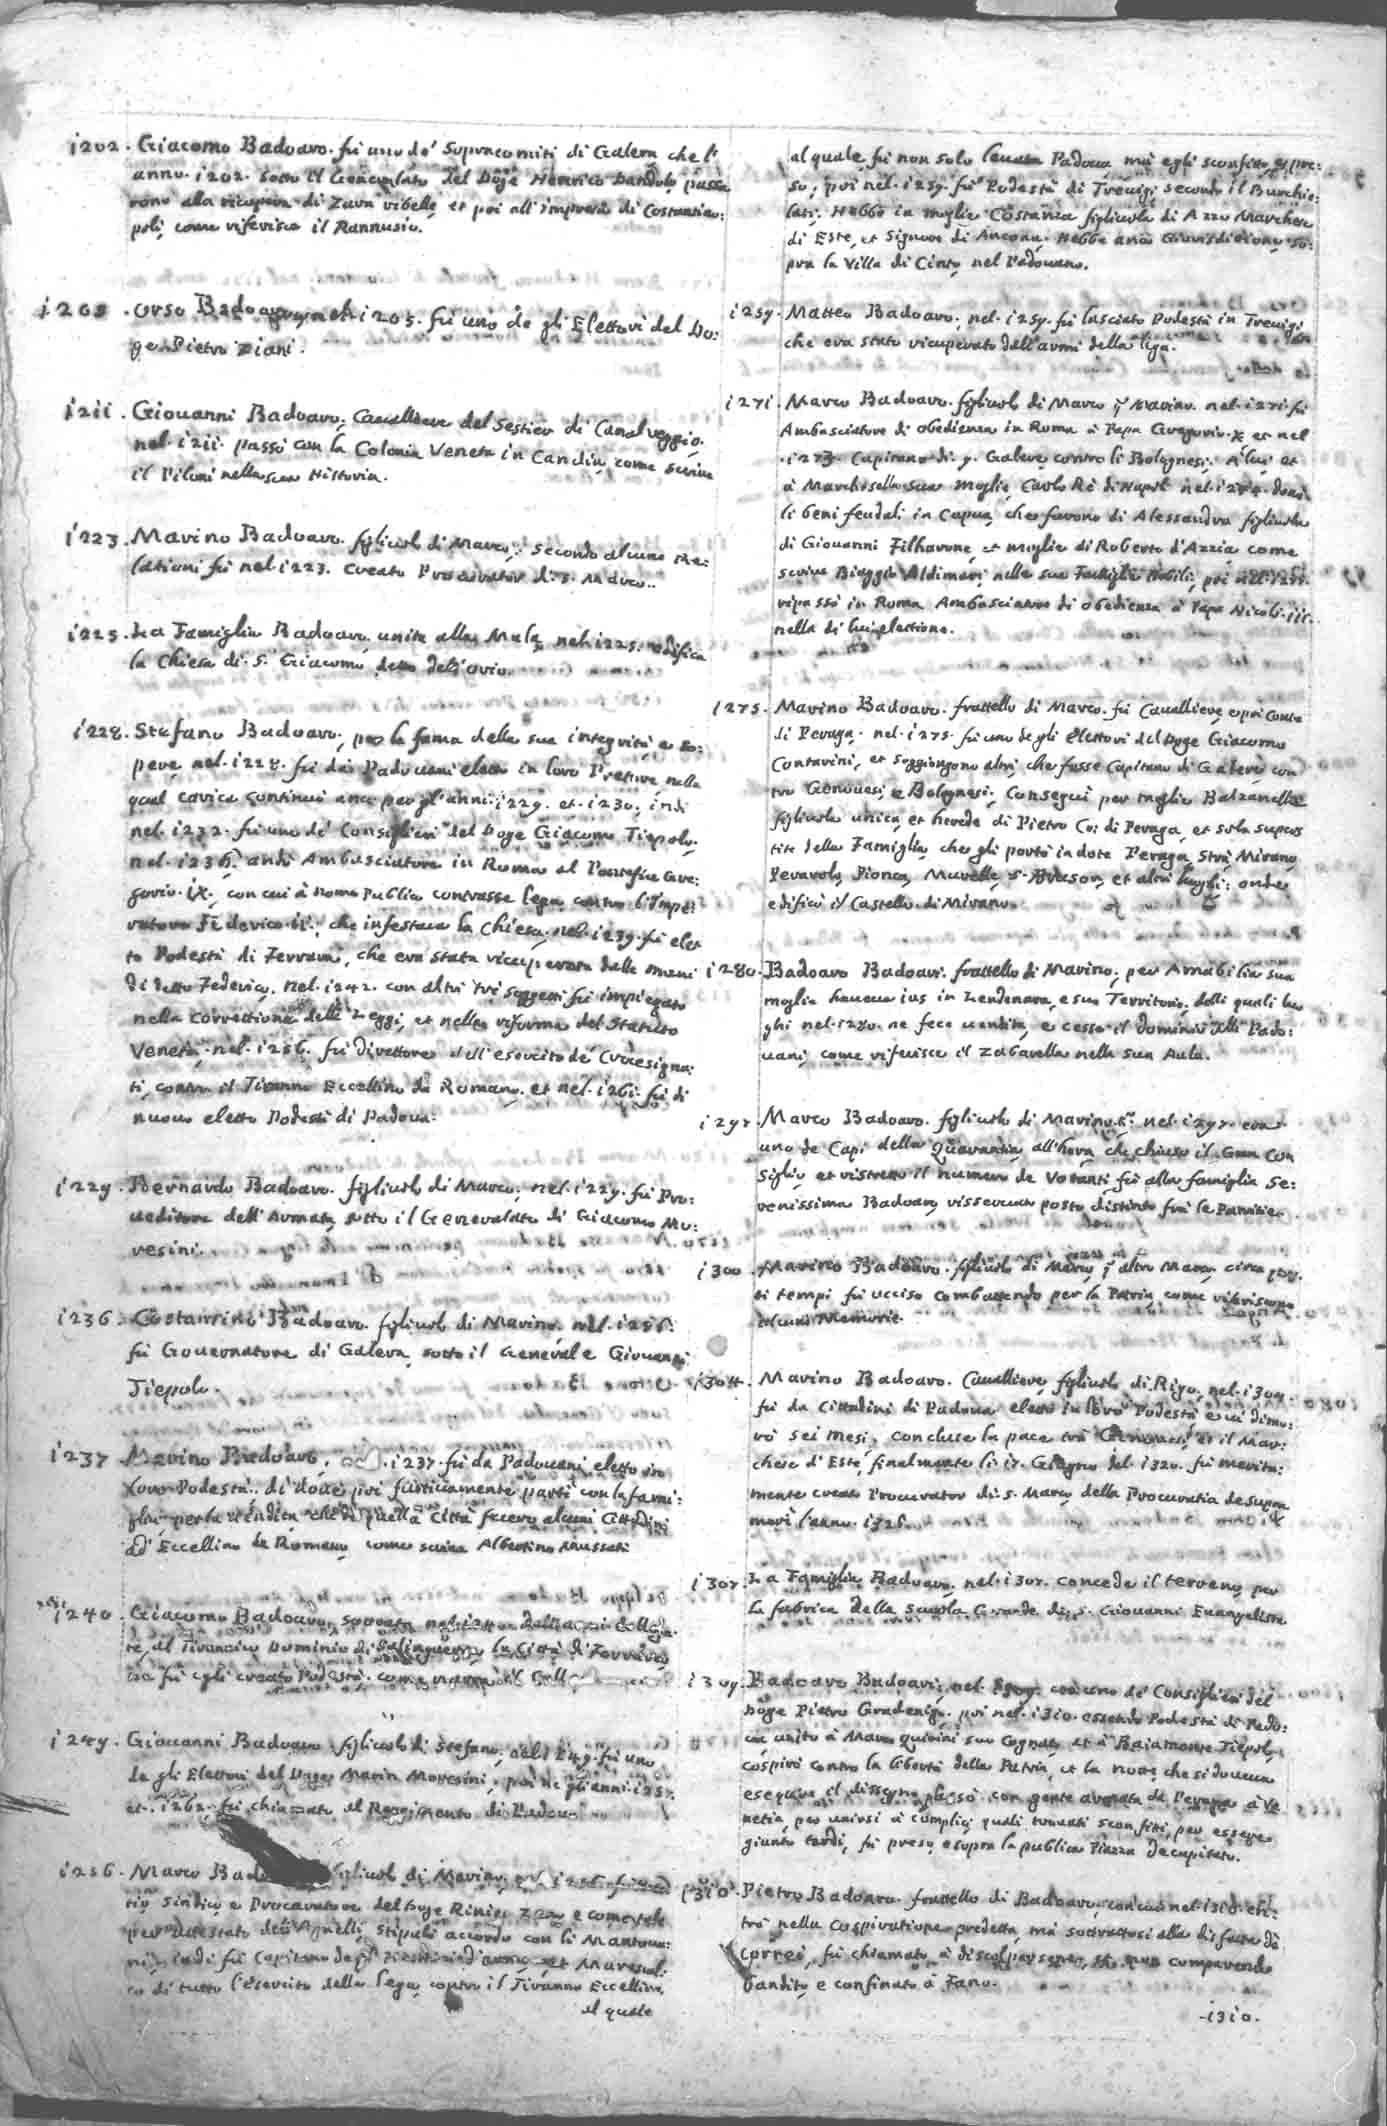 i202. Giacomo Badoaro. fu uno de' Sopracomiti di Galera che l'
anno. i202. sotto il Generalato del Doge Henrico Dandolo passa
rono alla ricupera di Zara ribelle, et poi all'impresa di Costantino:
poli, come riferisce il Rannusio.
i205. Orso Badoaro nel. i205. fu uno de gli Elettori del Do:
ge Pietro Ziani.
i2ii. Giouanni Badoaro. Caualliere del Sestier di Canalreggio.
nel. i2ii. passò con la Colonia Veneta in Candia, come scriue
il Piloni nella sua Historia.
i223. Marino Badoaro. figliuolo di Marco, secondo alcune Re:
lationi fu nel. i223. creato Procurator di. S. Marco.
i225. La Famiglia Badoara unita alla Mula, nel. i225. edifica
la Chiesa di. S. Giacomo detto dell'orio.
i228. Stefano Badoaro, per la fama della sua integrità e so:
pere, nel. i228. fu dai Padouani eletto in loro Pretore, nella
qual carica continuò anco per gl'anni. i229. et. i230. indi
nel. i232. fu uno de' Consiglieri del Doge Giacomo Tiepolo.
nel. i236. andò Ambasciatore in Roma al Pontefice Gre:
gorio. IX. con cui à nome Publico contrasse lega contro l'Impe:
ratore Federico. II. che infestaua la Chiesa. nel. i239. fu elet
to Podestà di Ferrara, che era stata ricuperata dalle mani
di detto Federico. nel. i242. con altri trè soggetti fu impiegato
nella correttione delle Leggi, et nella riforma del Statuto
Veneto. nel. i256. fu direttore dell'esercito de' Crucesigna:
ti, contro il Tiranno Eccellino da Romano. et nel. i26i. fu di
nuouo eletto Podestà di Padoua.
i229. Bernardo Badoaro. figliuolo di Marco, nel. i229. fu Pro:
ueditore dell'Armata, sotto il Generalato di Giacomo Mo:
resini.
i236. Costantino Badoaro. figliuolo di Marino. nel. i236.
fu Gouernatore di Galera, sotto il Generale Giouanni
Tiepolo.
i237 Marino Badoaro. i237. fu da Padouani eletto in
loro Podestà. di doue poi furtiuamente partì con la fami:
glia per la uendita che di quella Città fecero alcuni Cittadini
ad' Eccellino da Romano, come scriue Albertino Mussato
i240. Giacomo Badoaro, nel. i240. dall'armi Collega:
te, al Tirannico Dominio di Salinguerra la Città di Ferrara,
iui fu egli creato Podestà. come narra il
i249. Giouanni Badoaro figliuolo di Stefano, nel. i249. fu uno
de gli Elettori del Doge Marin Moresini, poi ne gl'anni. i257.
et. i262. fu chiamato al Reggimento di Padoua
i256. Marco Bado figliuolo di Marino, nel i256.
Sindico e Procuratore del Doge Rinier Zen e come tale
stipulò accordo con li Mantoua:
ni, indi fu Capitano et Marescal:
co di tutto l'esercito della lega contro il Tiranno Eccellino,
al quale
al quale fu non solo leuata Padoua, mà egli sconfitto, et pre:
so, poi nel. i259. fu Podestà di Treuigi secondo il Burchie:
lati. Hebbe in moglie Costanza figliuola di Azzo Marchese
di Este, et Signor di Ancona. Hebbe anco Giurisditione so:
pra la Villa di Cinto nel Padouano.
i259. Matteo Badoaro, nel. i259. fu lasciato Podestà in Treuigi,
che era stato ricuperato dall'armi della liga.
i27i. Marco Badoaro. figliuolo di Marco q. Marino. nel. i27i. fu
Ambasciatore di obedienza in Roma à Papa Gregorio. X. et nel
. i273. Capitano di. 9. Galere contro li Bolognesi. A lui et
à Marchesella sua moglie, Carlo Rè di Napoli nel. donò
li beni feudali in Capua, che furono di Alessandra figliuola
di Giouanni Filharone, et moglie di Roberto d'Azzia come
scriue Biaggio Aldimari, nelle sue Famiglie Nobili, poi nel.
ripassò in Roma Ambasciatore di obedienza à Papa Nicolò. iii.
nella di lui elettione.
i275. Marino Badoaro. frattello di Marco. fu Caualliere, e poi Conte
di Peraga. nel. i275. fu uno de gli Elettori del Doge Giacomo
Contarini, et soggiongono altri, che fusse Capitano di Galere, con
tro Genouesi, e Bolognesi. Conseguì per moglie Balzanella
figliuola unica, et herede di Pietro Co: di Peraga, et sola supers
tite della Famiglia, che gli portò in dote Peraga, Strà, Mirano,
Perarolo, Pionca, Murelle, S. Bruson, et altri luoghi: onde
edificò il Castello di Mirano.
i280. Badoaro Badoari. frattello di Marino, per Amabilia sua
moglie haueua ius in Lendenara, e suo Territorio, delli quali luo
ghi nel. i280. ne fece uendita, e cesse il dominio alli Pado:
uani, come riferisce il Zabarella nella sua Aula.
i297. Marco Badoaro. figliuolo di Marino. nel. i297. era
uno de Capi della Quarantia, all'hora che chiuso il Gran Con
siglio et ristretto il numero de Votanti fu alla famiglia Se:
renissima Badoara, risseruato posto distinto frà le Patritie.
i300. Marino Badoaro. figliuolo di Marco q. altro Marco, circa ques
ti tempi fu ucciso combattendo per la Patria, come riferiscono
alcune Memorie.
i304. Marino Badoaro. Caualliere, figliuolo di Rigo. nel. i304.
fu da Cittadini di Padoua eletto in loro Podestà e ui dimo:
rò sei mesi. Concluse la pace trà Genouesi, et il Mar:
chese d'Este, finalmente li. i7. Giugno del. i320. fu merita:
mente creato Procurator di. S. Marco della Procuratia de supra
morì l'anno. i326.
i307. La Famiglia Badoara. nel. i307. concede il terreno, per
la fabrica della Scuola Grande di. S. Giouanni Euangelista.
i309. Badoaro Badoari, nel. i309. era uno de' Consiglieri del
Doge Pietro Gradenigo. poi nel. i3i0. essendo Podestà di Pado:
ua, unito à Marco Quirini suo Cognato, et à Baiamonte Tiepolo,
cospirò contro la libertà della Patria, et la notte che si doueua
esequire il dissegno passò con gente armata da Peraga à Ve
netia, per unirsi à complici quali trouati sconfitti, per essere
giunto tardi, fu preso, e sopra la publica Piazza decapitato.
i3i0. Pietro Badoaro. frattello di Badoaro, nel. i3i0. en:
trò nella cospiratione predetta, mà sottrattosi alla disfatta de
Correi, fu chiamato à discolparsene, et non comparendo
bandito, e confinato à Fano.
. i3i0.